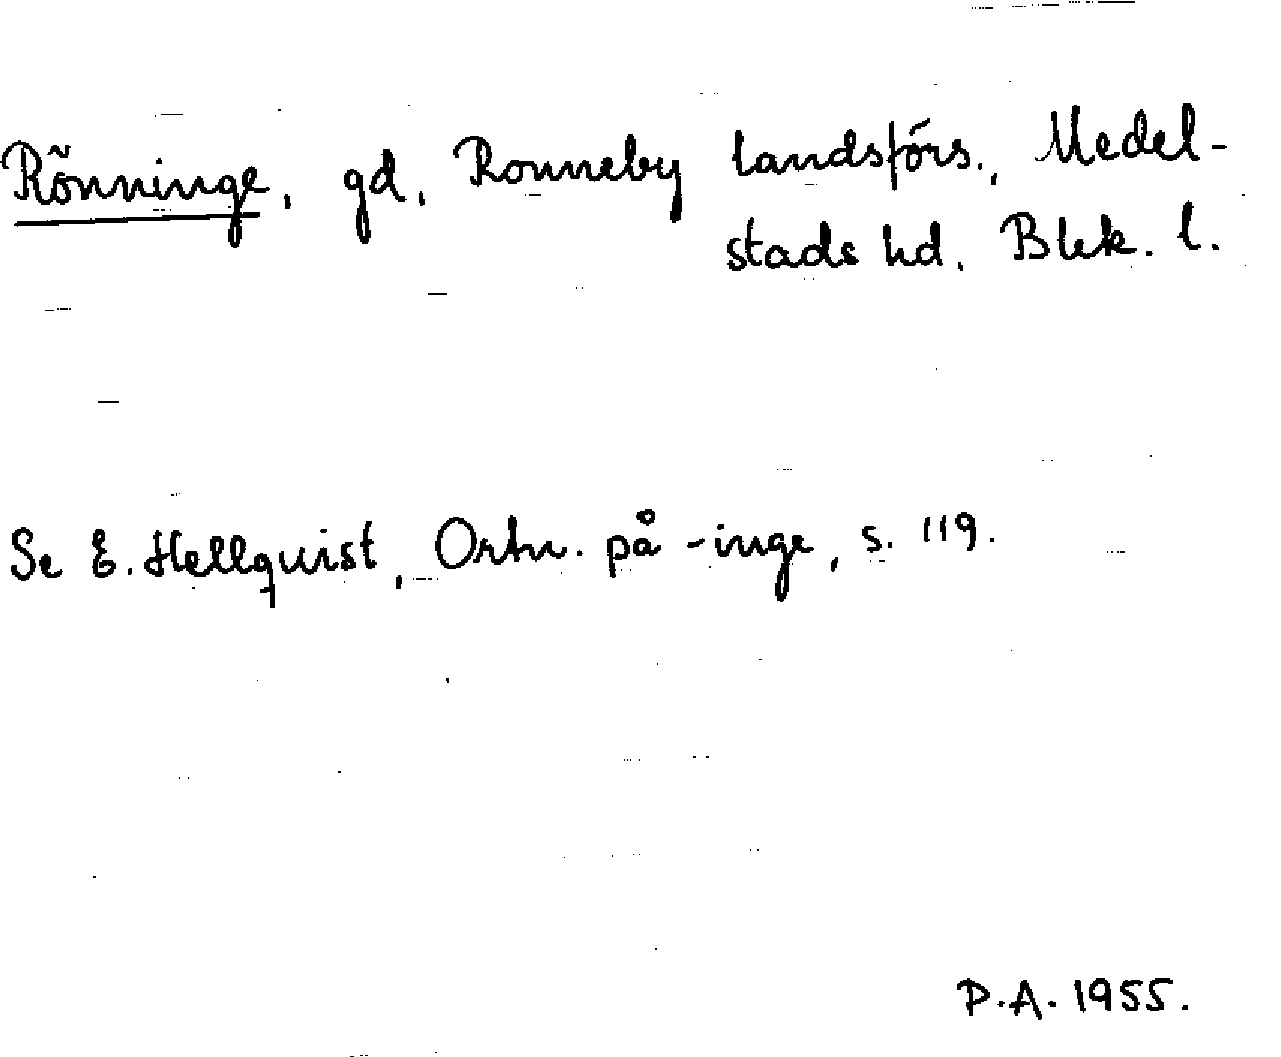 Rönninge, gd, Ronneby landsförs., Medel-
stads hd, Blek. l.
Se E. Hellquist, Ortn. på -inge, s. 119.
P.A. 1955.